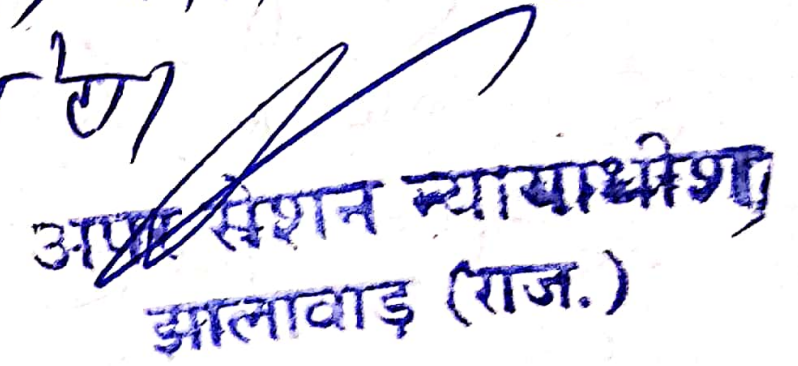 अपर सेशन न्यायाधीश,
झालावाड़ (राज.)